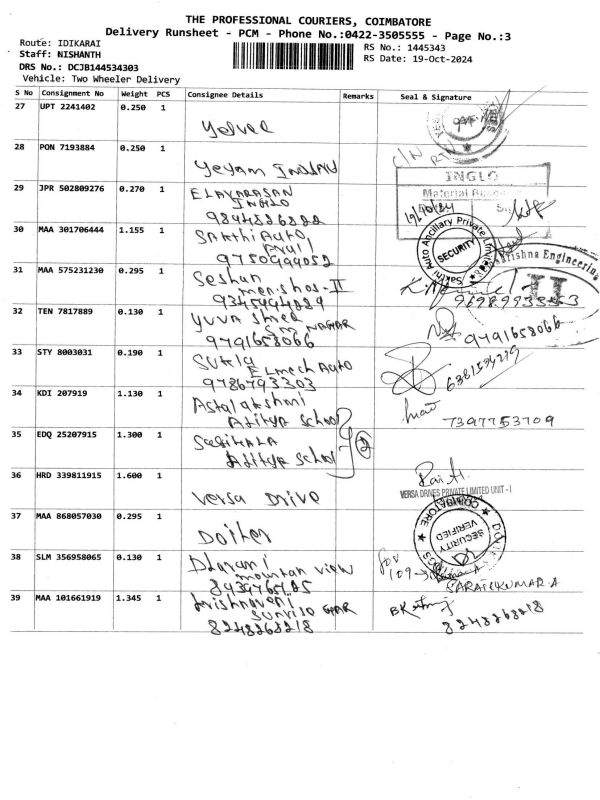 THE PROFESSIONAL COURIERS, COIMBATORE
Delivery Runsheet - PCM - Phone No.:0422-3505555 - Page No.:3
Route: IDIKARAI
Staff: NISHANTH
DRS No.: DCJB144534303
Vehicle: Two Wheeler Delivery
RS No.: 1445343
RS Date: 19-Oct-2024
S No Consignment No Weight PCS Consignee Details Remarks Seal & Signature
27 UPT 2241402 0.250 1
28 PON 7193884 0.250 1
29 JPR 502809276 0.270 1 ELAVARASAN
INGLO
9894826822
INGLO
Material
19/10/24
30 MAA 301706444 1.155 1 Sakthi Auto
9750999052
Sakthi Auto Ancillary Private Limited
SECURITY
31 MAA 575231230 0.295 1 Seshan
9345994829
Krishna Engineering
II
9698993553
32 TEN 7817889 0.130 1 yuva shree
SM NAGAR
9791658066
9791658066
33 STY 8003031 0.190 1
ELmech Auto
9786793303
6381534219
34 KDI 207919 1.130 1
Aditya School
7397753709
35 EDQ 25207915 1.300 1 SASIKALA
Aditya School
2
36 HRD 339811915 1.600 1 Versa Drive
VERSA DRIVES PRIVATE LIMITED UNIT - I
37 MAA 868057030 0.295 1
COIMBATORE
SECURITY
VERIFIED
38 SLM 356958065 0.130 1 Dharani
mountan view
for
109
SARATHKUMAR.A
39 MAA 101661919 1.345 1 krishnaveni
8248268218
8248268218